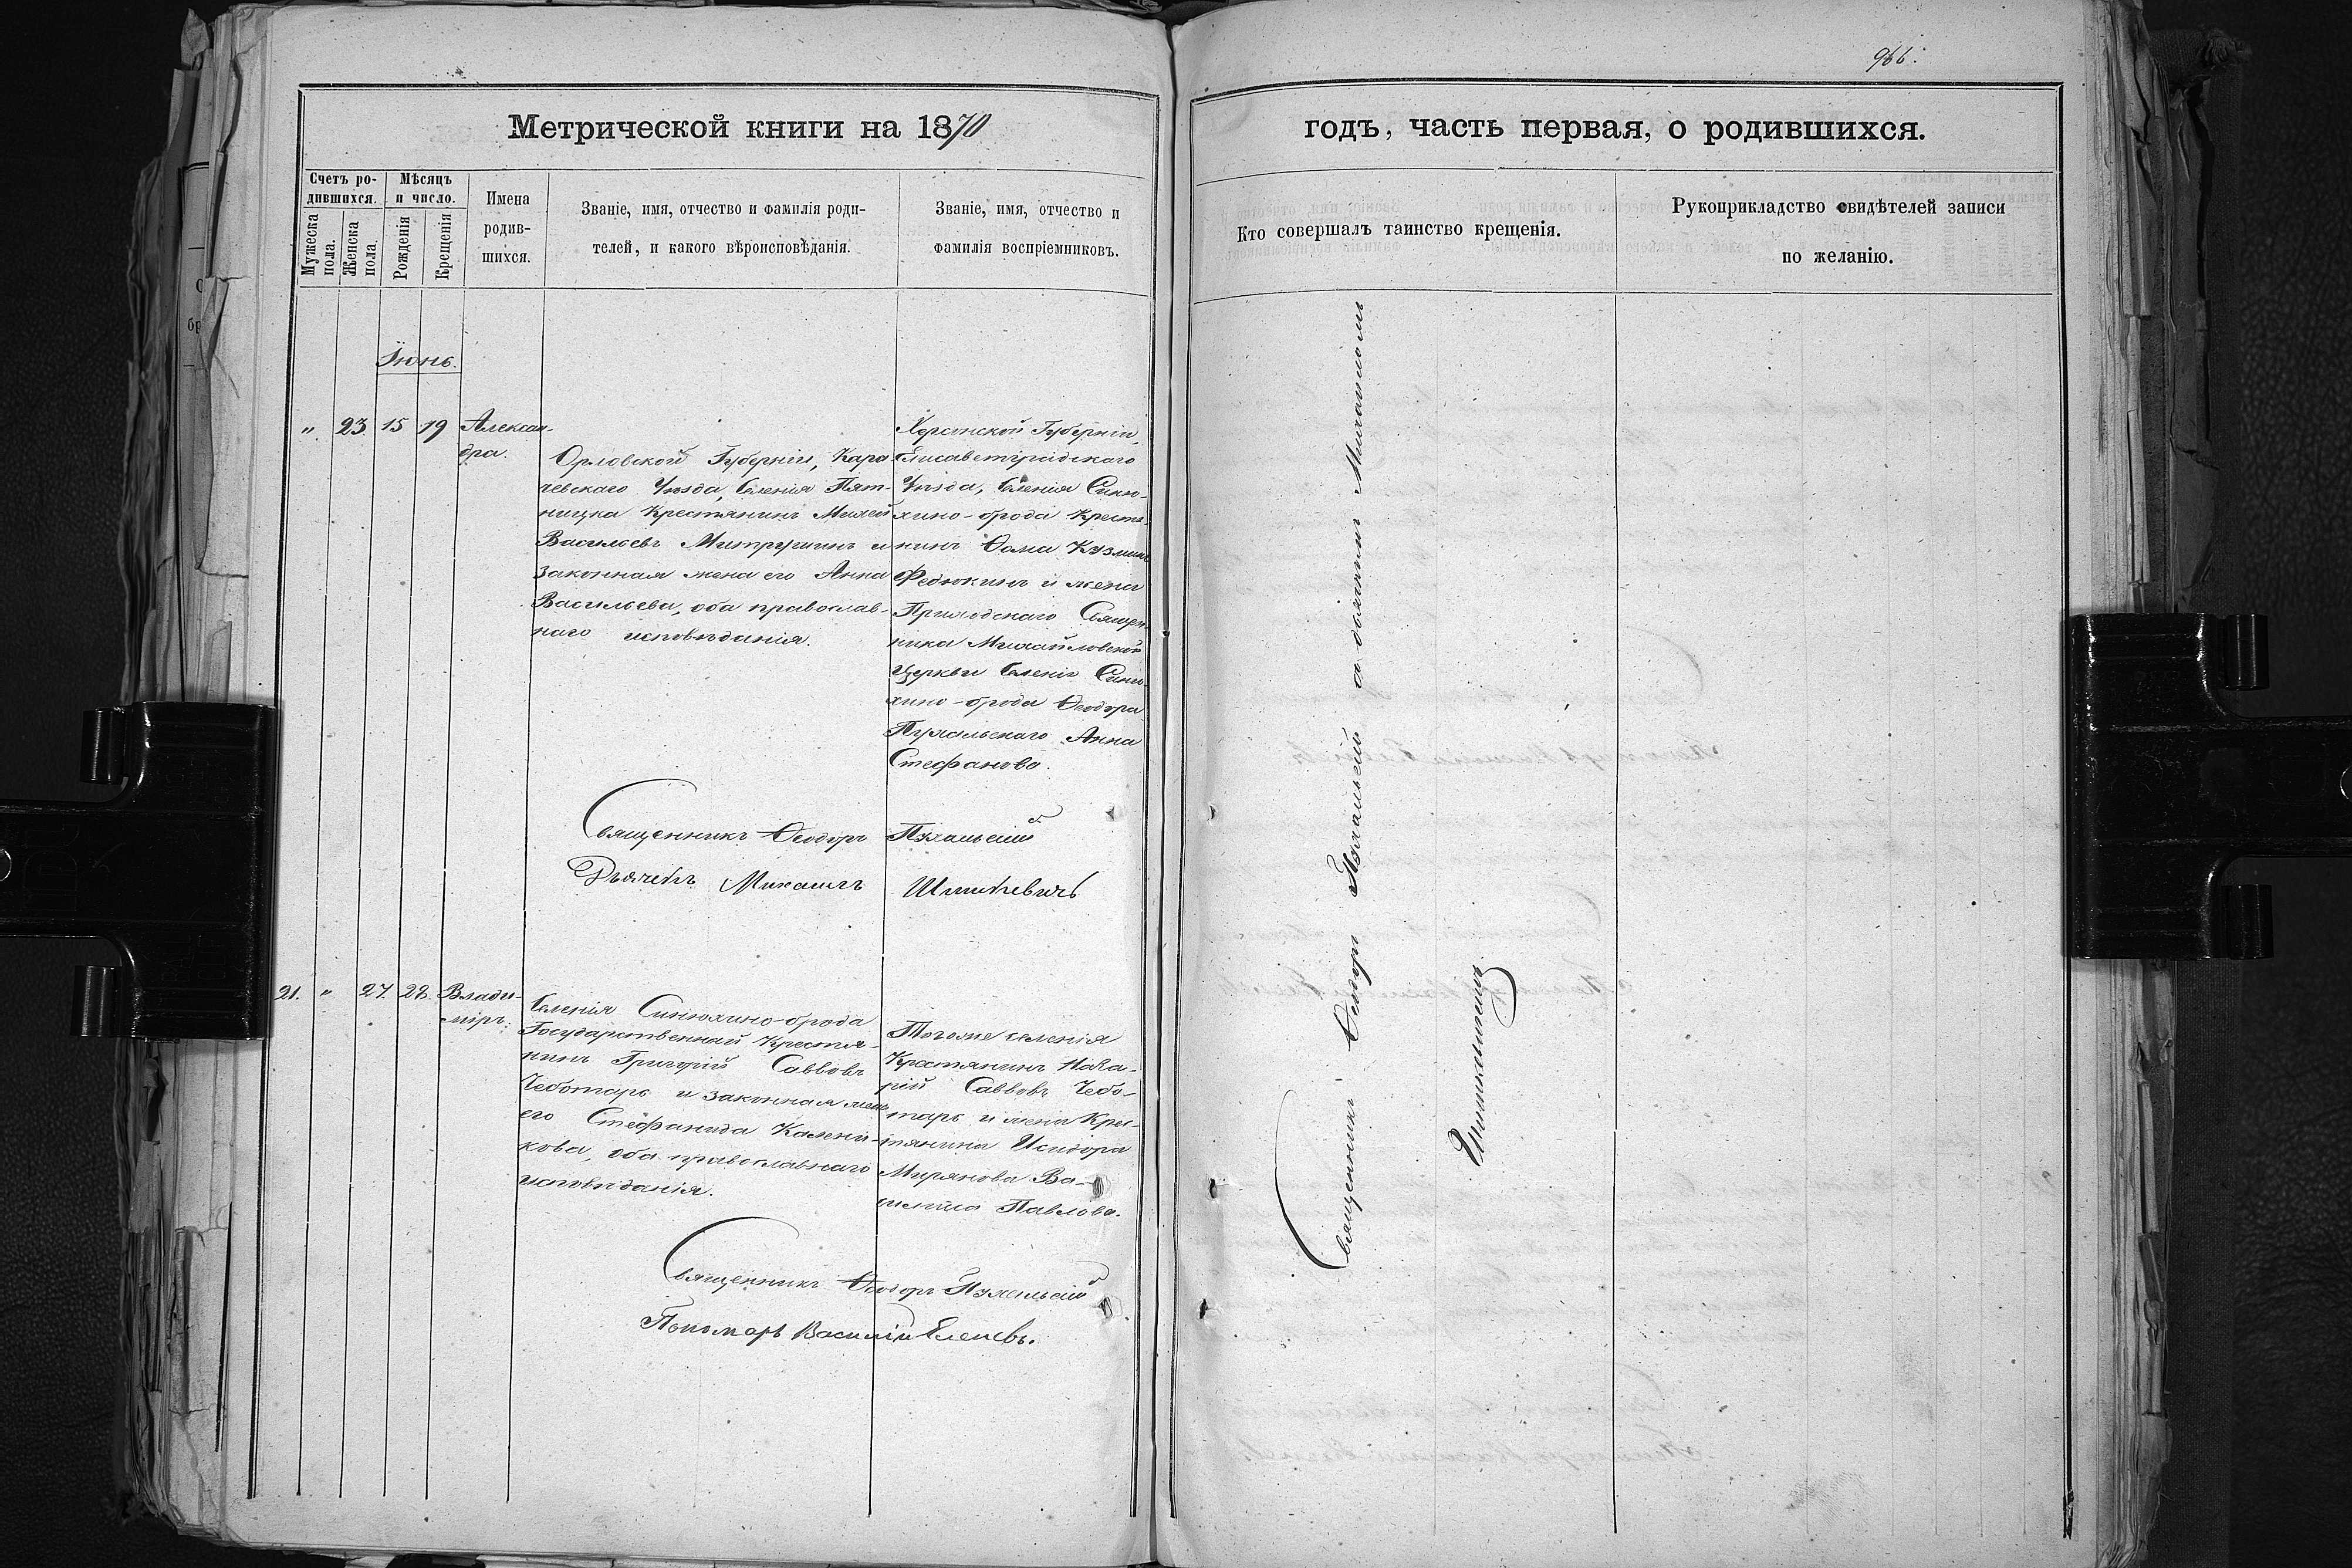 966.
Метрической книги на 1870
годъ, часть первая, о родившихся.
Счетъ ро-
дившихся.
Мужеска
пола.
Женска
пола.
Мѣсяцъ
и число.
Рожденія
Крещенія
Имена
родив-
шихся.
Званіе, имя, отчество и фамилія роди-
телей, и какого вѣроисповѣданія.
Званіе, имя, отчество и
фамилія воспріемниковъ.
Кто совершалъ таинство крещенія.
Рукоприкладство свидѣтелей записи
по желанію.
Іюнь.
" 23. 15 19 Алексан-
дра.
Орловской Губерніи, Кара-
чевскаго Уѣзда, Селенія Пят-
ницка Крестянинъ
Васильевъ Митрушинъ и
законная жена его Анна
Васильева, оба православ-
наго исповѣданія.
Херсонской Губерніи,
Елисаветградскаго
Уѣзда, Селенія Синю-
хино-брода Крестя-
нинъ Ѳома Кузминъ
Федюкинъ и жена
Приходскаго Священ-
ника Михайловской
Церкви Селенія Синю-
хино-брода Ѳеодора
Пухальскаго Анна
Стефанова.
Священникъ Ѳеодоръ Пухальскій
Дьячекъ Михаилъ Шиманевичъ
21. " 27. 28. Влади-
міръ.
Селенія Синюхино-брода
Государственный Крестя-
нинъ Григорій Саввовъ
Чеботарь и законная жена
его Стефанида Калени-
кова, оба православнаго
исповѣданія.
Тогоже селенія
Крестянинъ Наза-
рій Саввовъ Чебо-
тарь и жена Крес-
тянина Исидора
Мирянова Ва-
Павлова.
Священникъ Ѳеодоръ Пухальскій
Пономарь Василій Еленевъ.
Священникъ Ѳеодоръ Пухальскій со дьячкомъ Михаиломъ